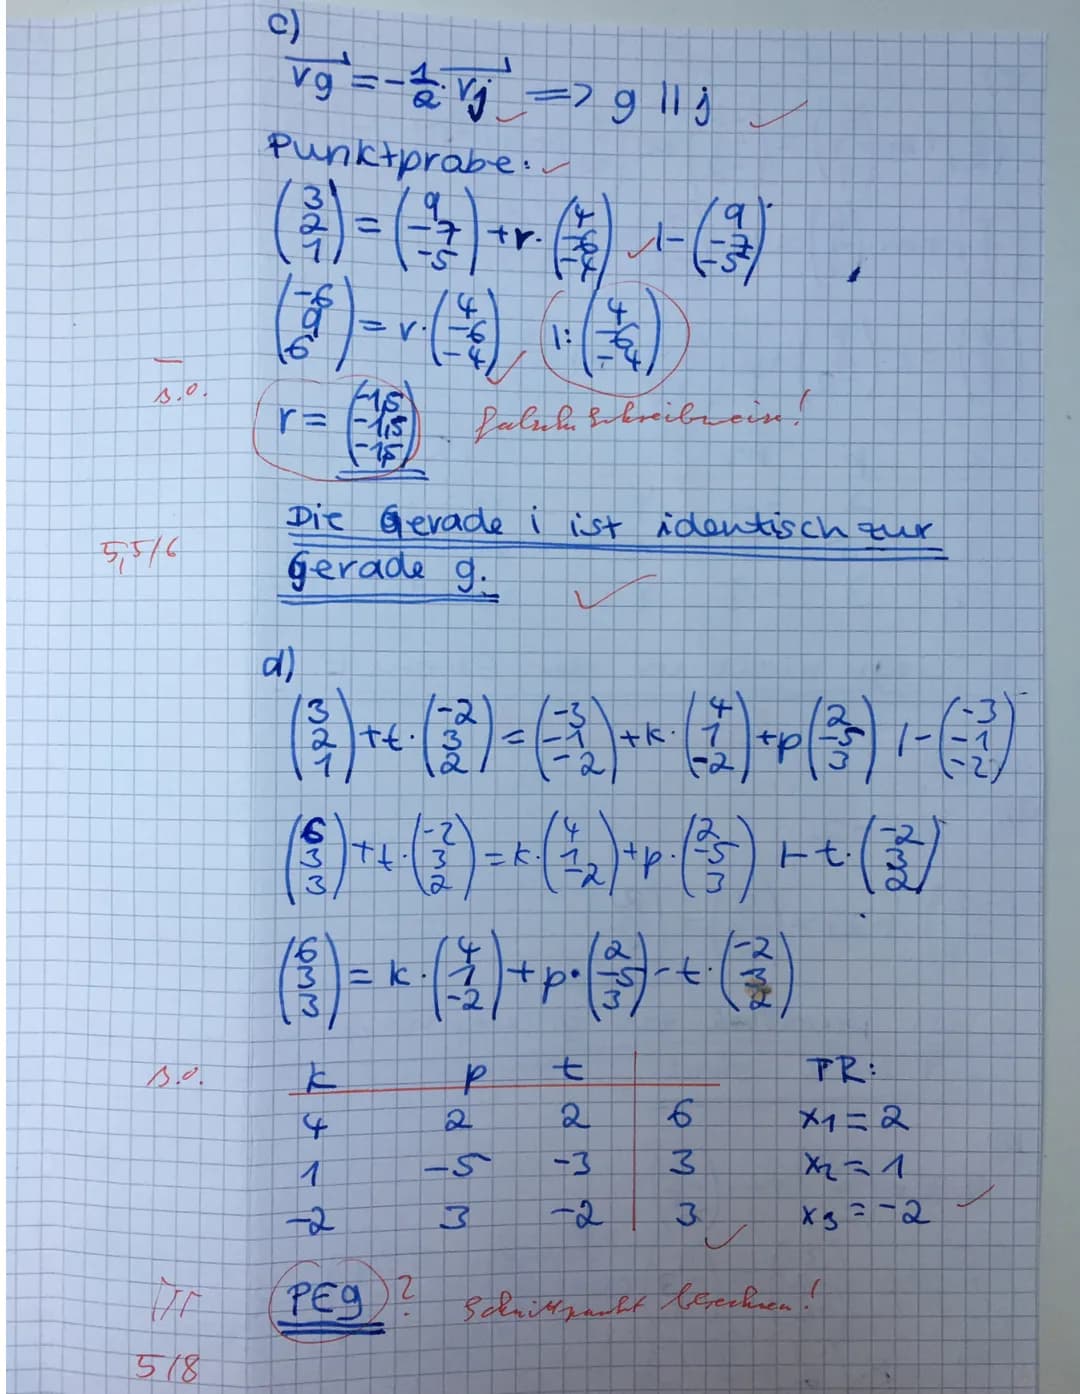 c)
vg = -1/2 · vj => g || j ✓
Punktprobe: ✓
(3 2 1) = (9 -7 -5) + r · (4 -6 -4) ✓ | - (9 -7 -5)
(-6 9 6) = r · (4 -6 -4) ✓ | : (4 -6 -4)
s.o.
r = (-1,5 -1,5 -1,5) falsche Schreibweise!
Die Gerade i ist identisch zur
5,5/6
Gerade g. ✓
d)
(3 2 1) + t · (-2 3 2) = (-3 -1 -2) + k · (4 1 -2) + p (2 -5 3) | - (-3 -1 -2)
(6 3 3) + t · (-2 3 2) = k · (4 1 -2) + p · (2 -5 3) | - t · (-2 3 2)
(6 3 3) = k · (4 1 -2) + p · (2 -5 3) - t · (-2 3 2)
s.o. k p t TR:
4 2 2 6 x1 = 2
1 -5 -3 3 x2 = 1
-2 3 -2 3 ✓ x3 = -2 ✓
PEg ? Schnittpunkt berechnen!
5/8